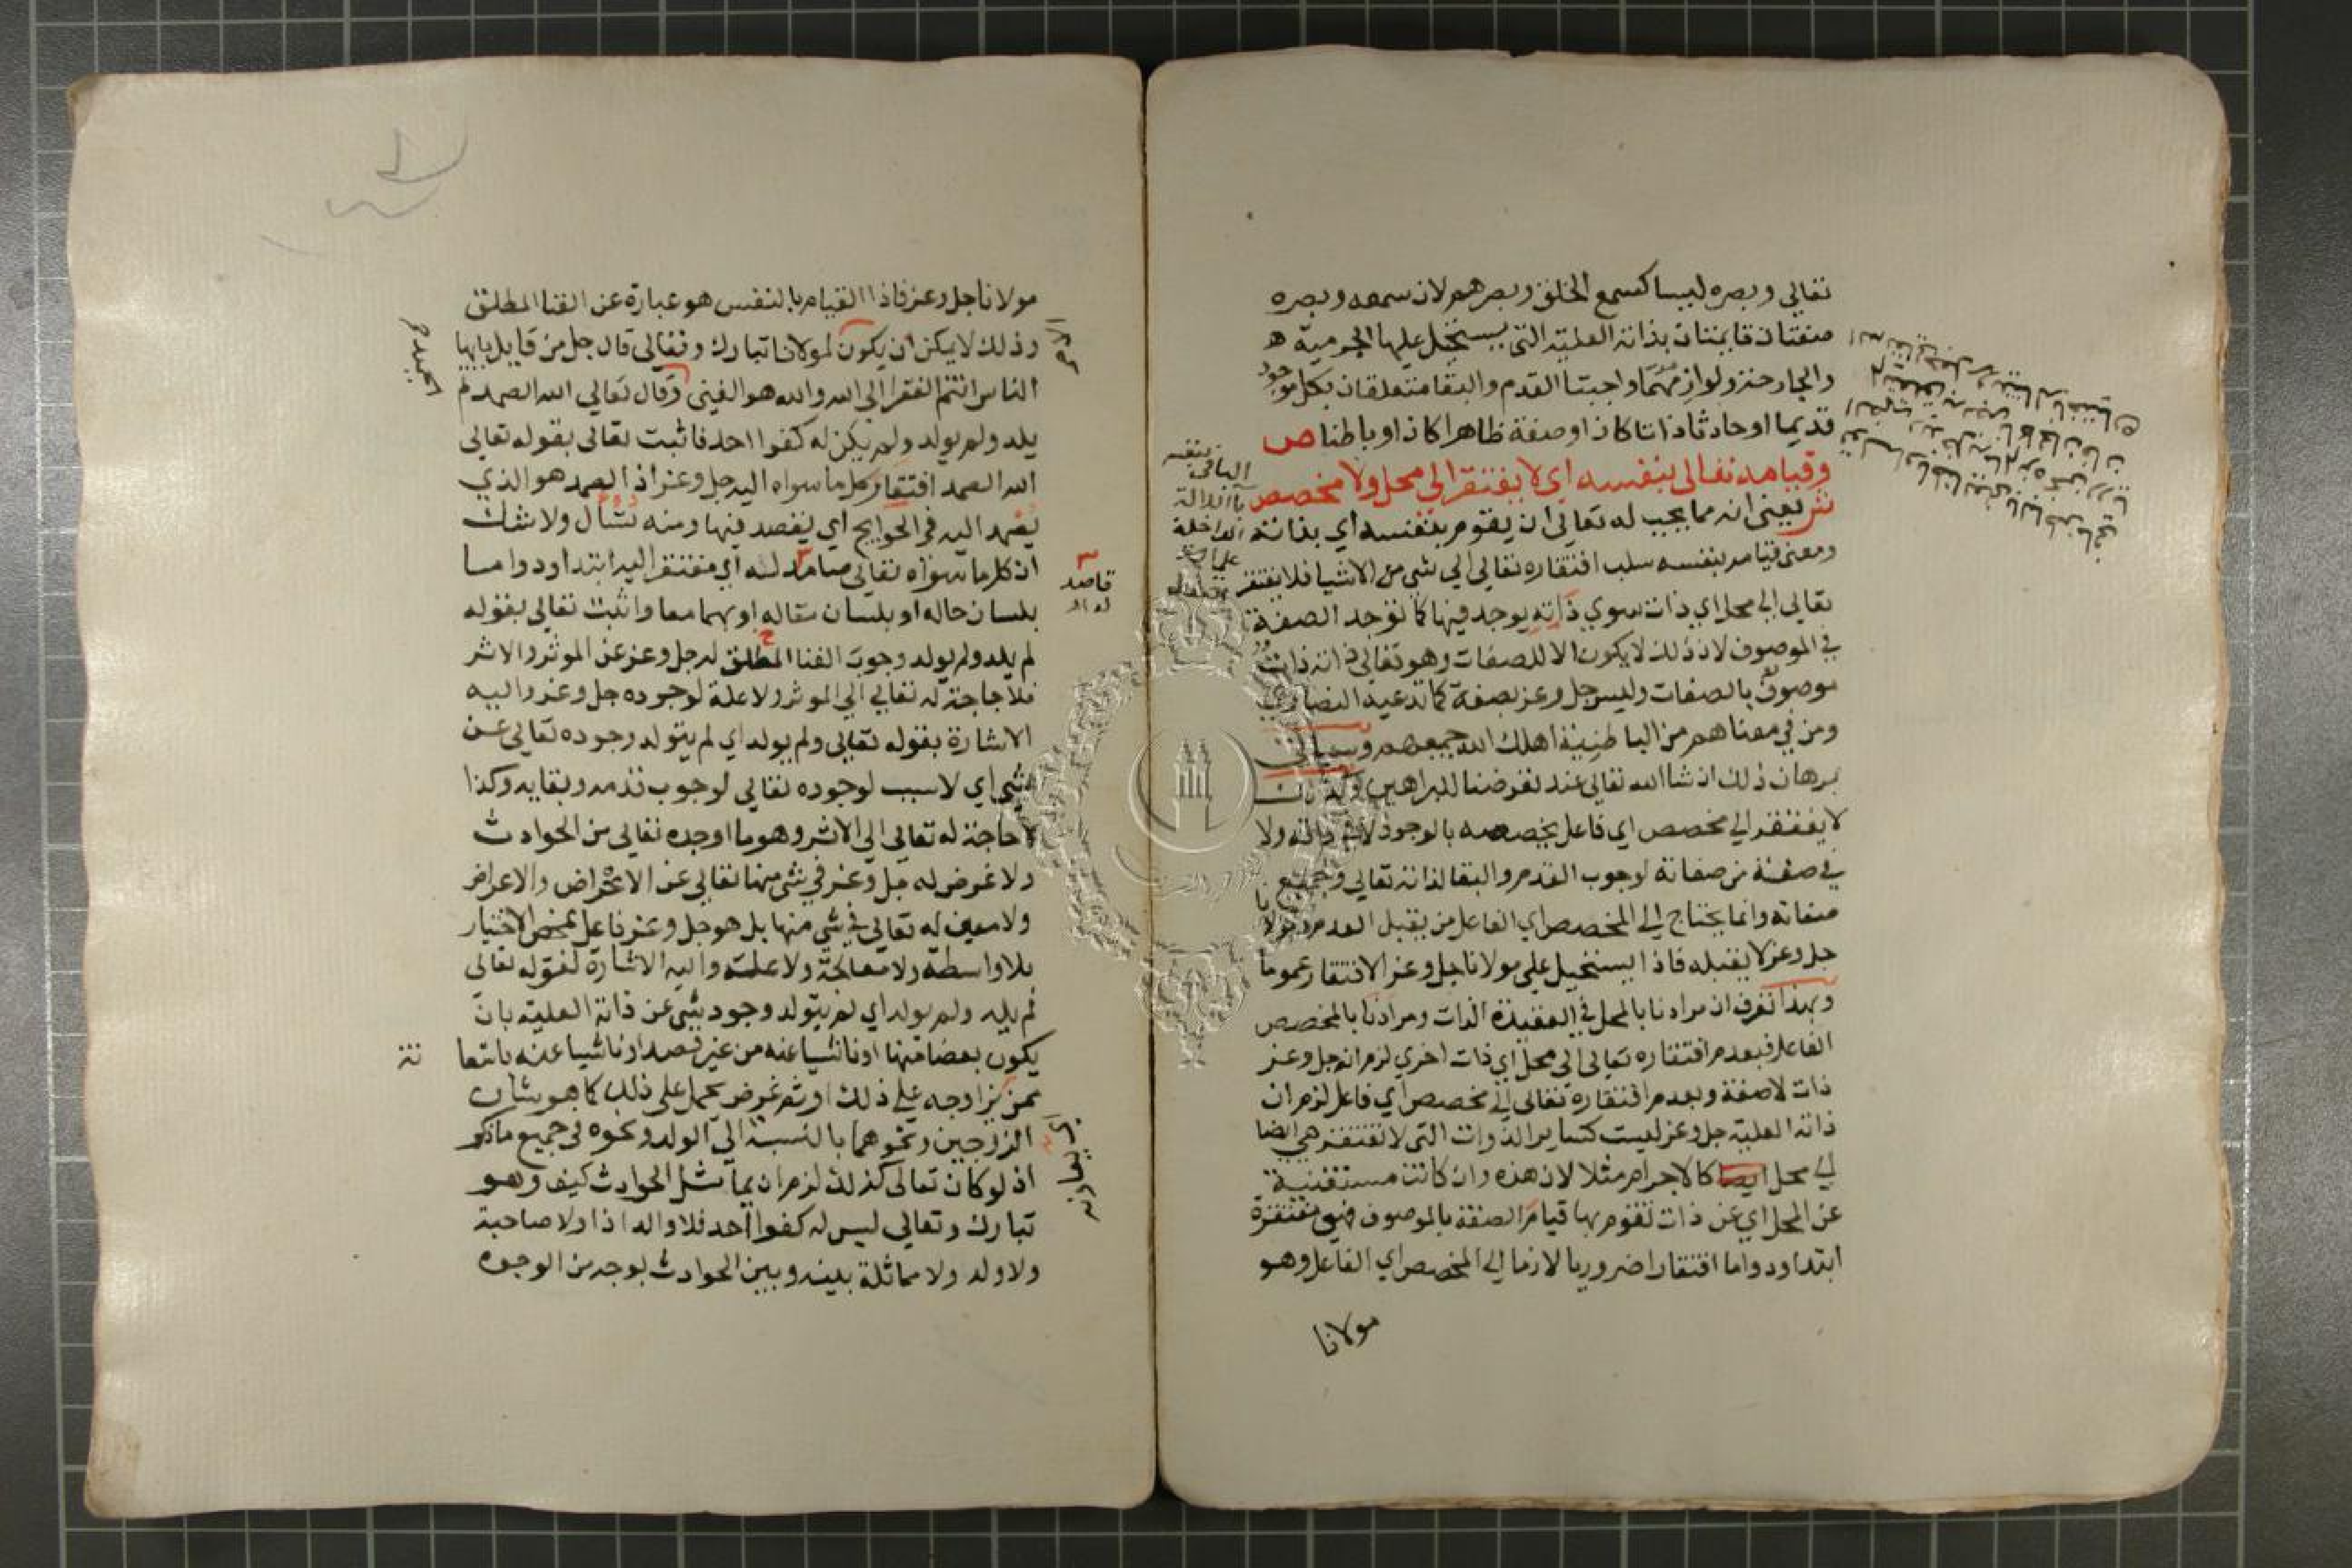 تعالى وبصره ليسا كسمع الخلق وبصرهم لان سمعه وبصره
صفتان قايمتان بذاته العلية التي يستحيل عليها الجرمية
والجارحة ولوازمهما واجبتا القدم والبقا متعلقان بكل موجود
قديما او حادثا ذاتا كان او صفة ظاهرا كان او باطنا ص
وقيامه تعالى بنفسه اي لا يفتقر الى محل ولا مخصص
ش يعني انه مما يجب له تعالى ان يقوم بنفسه اي بذاته
ومعنى قيامه بنفسه سلب افتقاره تعالى الى شي من الاشيا فلا يفتقر
تعالى الى محل اي ذات سوي ذاته يوجد فيها كما توجد الصفة
في الموصوف لان ذلك لا يكون الا للصفات وهو تعالى ذاته ذات
موصوف بالصفات وليس جل وعز بصفة كما تدعيه النصارى
ومن في معناهم من الباطنية اهلك الله جميعهم وسياتي
برهان ذلك ان شا الله تعالى عند تعرضنا للبراهين وكذلك
لا يفتقر الى مخصص اي فاعل يخصصه بالوجود لا في ذاته ولا
في صفة من صفاته لوجوب القدم والبقا لذاته تعالى وجميع
صفاته وانما يحتاج الى المخصص اي الفاعل من يقبل العدم ومولانا
جل وعز لا يقبله فاذا يستحيل على مولانا جل وعز الافتقار عموما
وبهذا تعرف ان مرادنا بالمحل في العقيدة الذات ومرادنا بالمخصص
الفاعل فبعدم افتقاره تعالى الى محل اي ذات اخري لزم انه جل وعز
ذات لا صفة وبعدم افتقاره تعالى الى مخصص اي فاعل لزم ان
ذاته العلية جل وعز ليست كساير الذوات التي لا تفتقر هي ايضا
الى محل ايضا كالاجرام مثلا لان هذه وان كانت مستغنية
عن المحل اي عن ذات تقوم بها قيام الصفة بالموصوف فهي مفتقرة
ابتدا ودواما افتقارا ضروريا لازما الى المخصص اي الفاعل وهو
مولانا
مولانا جل وعز فاذا القيام بالنفس هو عبارة عن الغنا المطلق
وذلك لا يمكن ان يكون لمولانا تبارك وتعالى قال جل من قايل يايها
الناس انتم الفقرا الى الله والله هو الغني وقال تعالى الله الصمد لم
يلد ولم يولد ولم يكن له كفوا احد فاثبت تعالى بقوله تعالى
الله الصمد افتقار كل ما سواه اليه جل وعز اذ الصمد هو الذي
يصمد اليه في الحوايج اي يقصد فيها ومنه تسأل ولا شك
ان كل ما سواه تعالى صامد له اي مفتقر اليه ابتدا ودواما
بلسان حاله او بلسان مقاله او بهما معا واثبت تعالى بقوله
لم يلد ولم يولد وجوب الغنا المطلق له جل وعز عن الموثر والاثر
فلا حاجة له تعالى الى الموثر ولا علة لوجوده جل وعز واليه
الاشارة بقوله تعالى ولم يولد اي لم يتولد وجوده تعالى عن
شي اي لا سبب لوجوده تعالى لوجوب قدمه وبقايه وكذا
لا حاجة له تعالى الى الاثر وهو ما اوجده تعالى من الحوادث
ولا غرض له جل وعز في شي منها تعالى عن الاغراض والاعراض
ولا معين له تعالى في شي منها بل هو جل وعز فاعل بمحض الاختيار
بلا واسطة ولا معالجة ولا علة واليه الاشارة لقوله تعالى
لم يلد ولم يولد اي لم يتولد وجود شي عن ذاته العلية بان
يكون بعضا منها او ناشيا عنه من غير قصد او ناشيا عنه باستعا
نة
ممن يزاوجه على ذلك او ثم غرض يحمل على ذلك كما هو شان
الزوجين ونحوهما بالنسبة الى الولد ونحوه في جميع ما ذكر
اذ لو كان تعالى كذلك لزم ان يماثل الحوادث كيف وهو
تبارك وتعالى ليس له كفوا احد فلا والد اذا ولا صاحبة
ولا ولد ولا مماثلة بينه وبين الحوادث بوجه من الوجوه
الحميد
قاصد